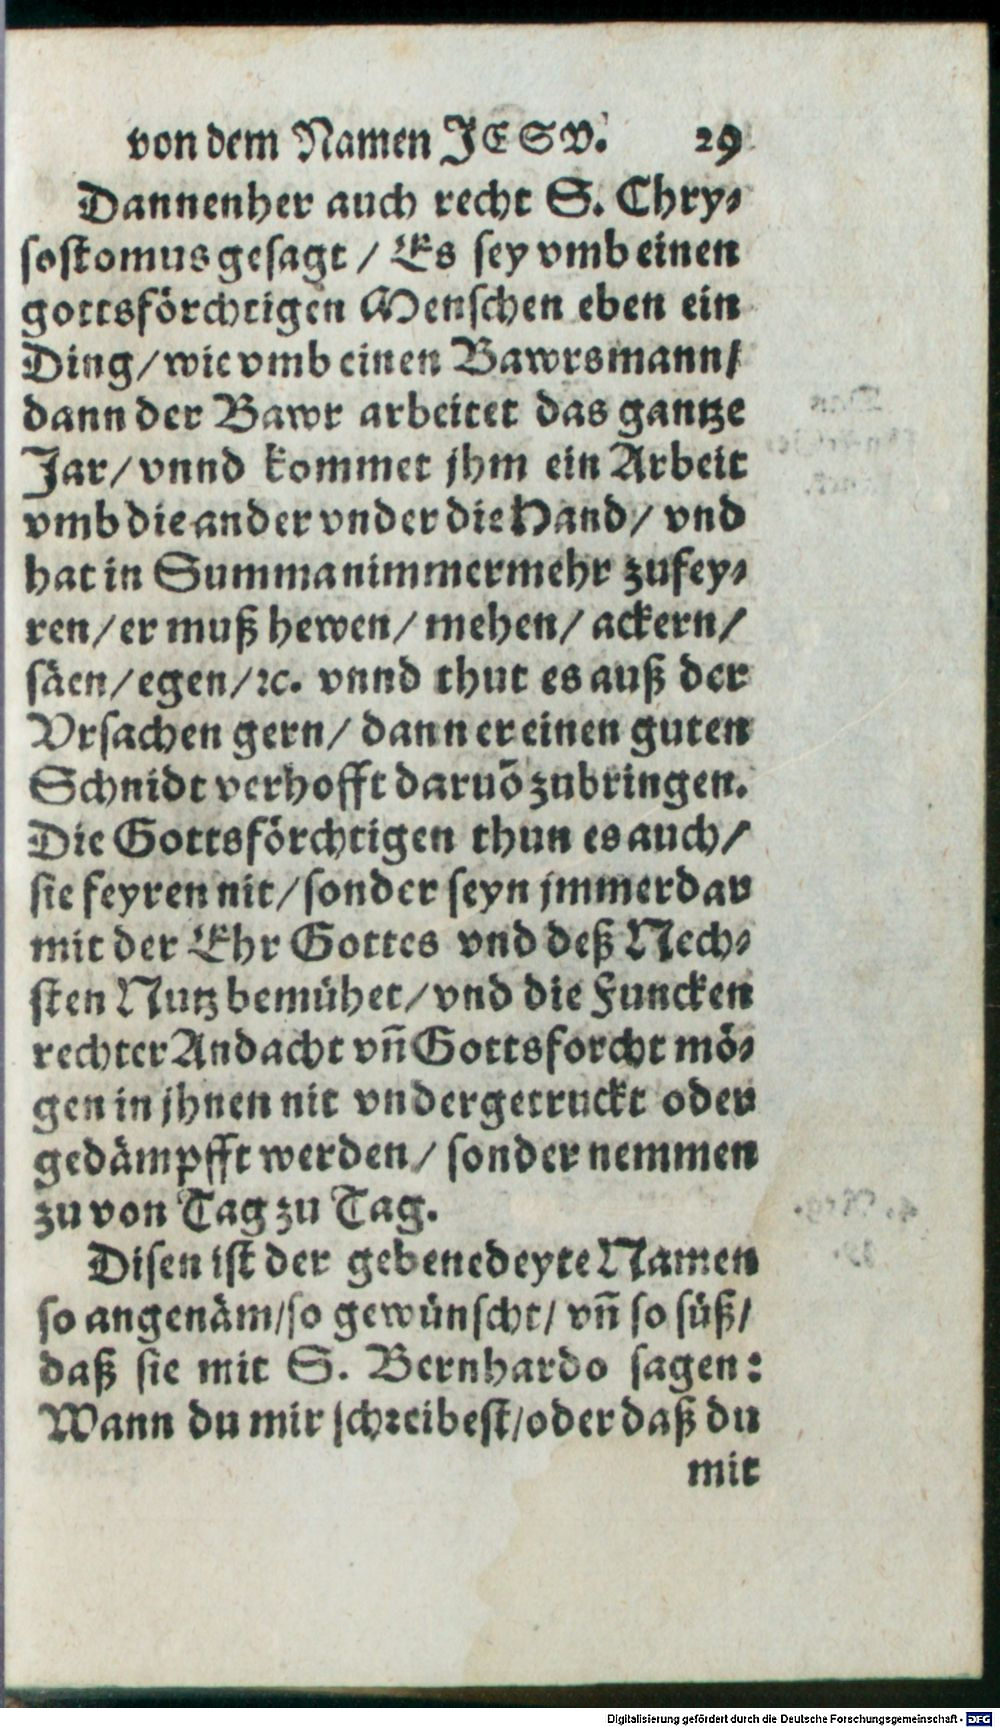 von dem Namen JESV. 29
Dannenher auch recht S. Chry-
sostomus gesagt / Es sey vmb einen
gottsförchtigen Menschen eben ein
Ding / wie vmb einen Bawrsmann /
dann der Bawr arbeitet das gantze
Jar / vnnd kommet jhm ein Arbeit
vmb die ander vnder die Hand / vnd
hat in Summa nimmermehr zufey-
ren / er muß hewen / mehen / ackern /
säen / egen / ꝛc. vnnd thut es auß der
Vrsachen gern / dann er einen guten
Schnidt verhofft daruõ zubringen.
Die Gottsförchtigen thun es auch /
sie feyren nit / sonder seyn jmmerdar
mit der Ehr Gottes vnd deß Nech-
sten Nutz bemühet / vnd die Funcken
rechter Andacht vñ Gottsforcht mö-
gen in jhnen nit vndergetruckt oder
gedämpfft werden / sonder nemmen
zu von Tag zu Tag.
Disen ist der gebenedeyte Namen
so angenäm / so gewünscht / vñ so süß /
daß sie mit S. Bernhardo sagen:
Wann du mir schreibest / oder daß du
mit
Digitalisierung gefördert durch die Deutsche Forschungsgemeinschaft - DFG